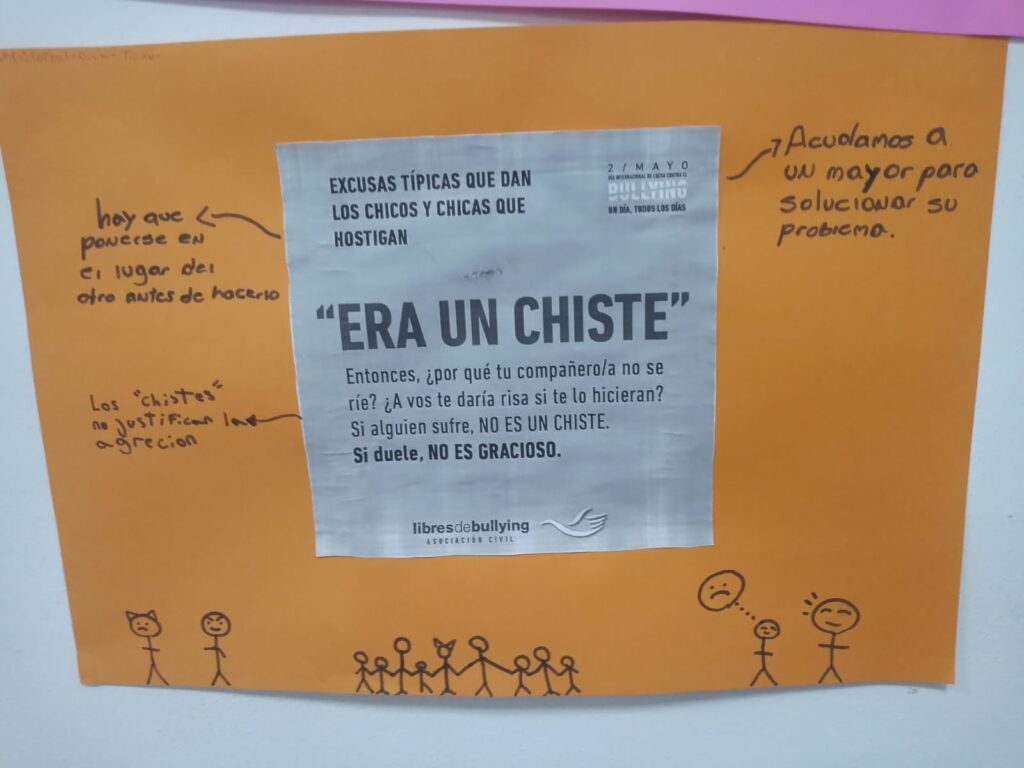 EXCUSAS TÍPICAS QUE DAN
LOS CHICOS Y CHICAS QUE
HOSTIGAN
2 / MAYO
DÍA INTERNACIONAL DE LUCHA CONTRA EL
BULLYING
UN DÍA, TODOS LOS DÍAS
"ERA UN CHISTE"
Entonces, ¿por qué tu compañero/a no se
ríe? ¿A vos te daría risa si te lo hicieran?
Si alguien sufre, NO ES UN CHISTE.
Si duele, NO ES GRACIOSO.
libresdebullying
ASOCIACIÓN CIVIL
hay que
ponerse en
el lugar del
otro antes de hacerlo
Los "chistes"
no justifican la
agrecion
Acudamos a
un mayor para
solucionar su
problema.